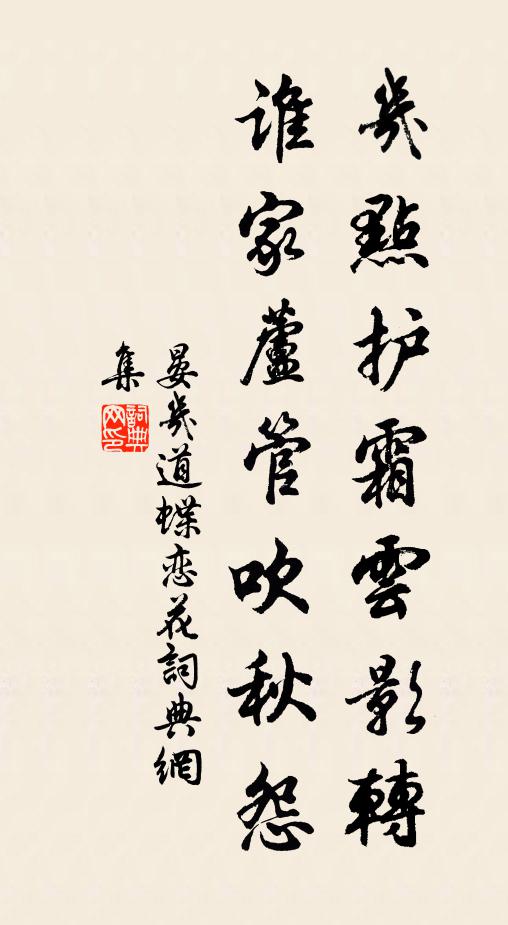 幾點护霜雲影轉
誰家蘆管吹秋怨
晏幾道蝶恋花詞典網
集
詞典
网印